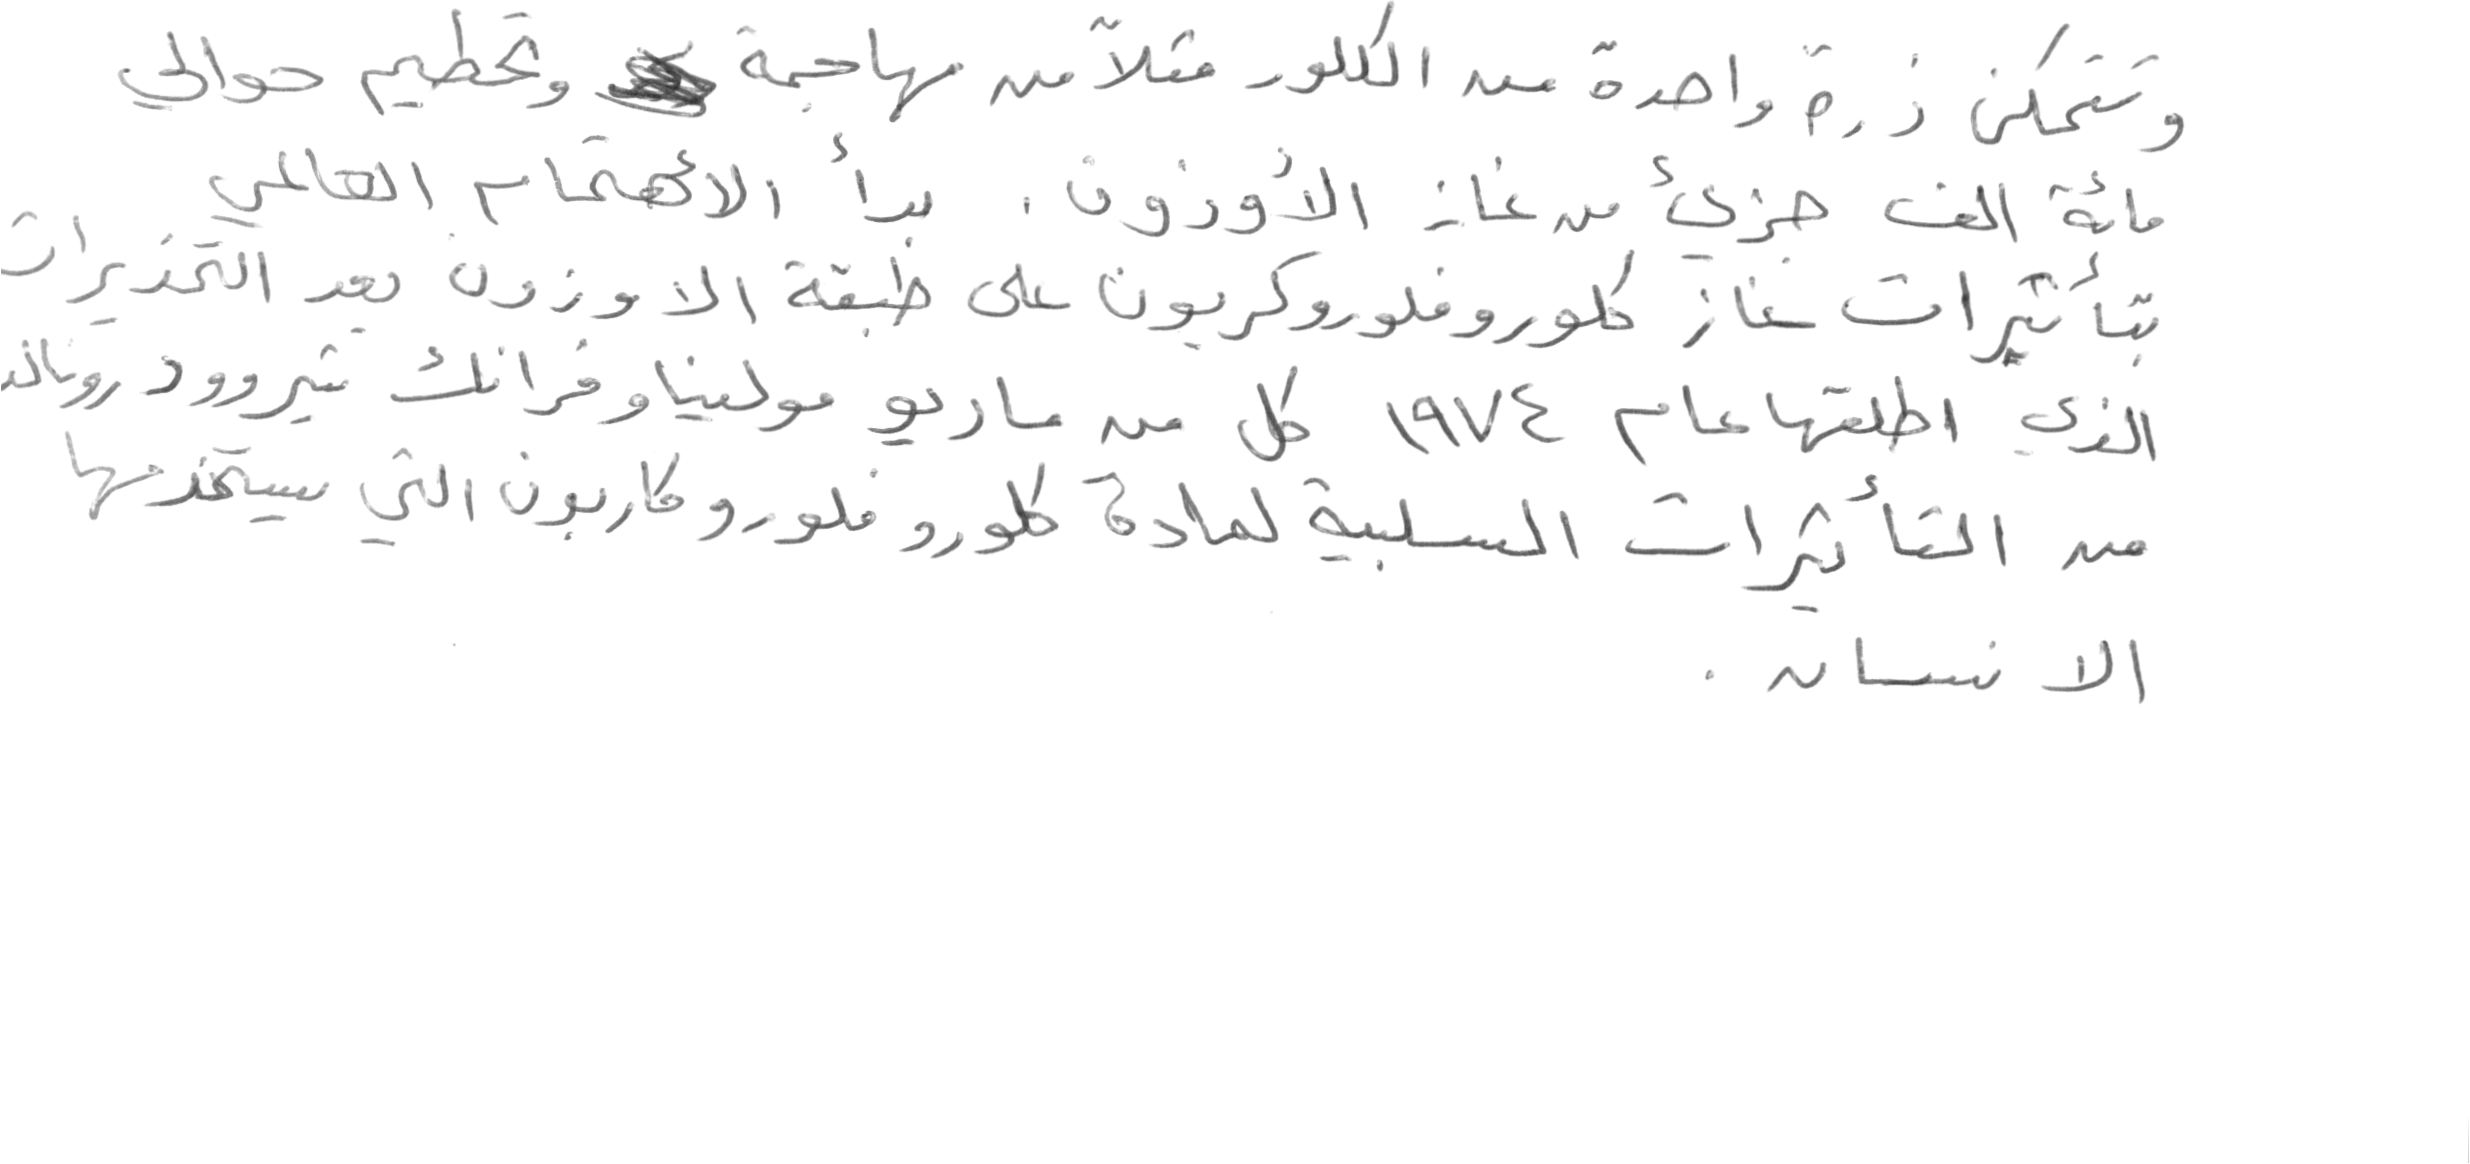 وتتمكن ذرة واحدة من الكلور مثلاً من مهاجمة وتحطيم حوالي
مائة الف جزيئ من غاز الأوزون. بدأ الاهتمام العالمي
بتأثيرات غاز كلوروفلوروكربون على طبقة الاوزون بعد التحذيرات
الذي اطلقها عام ١٩٧٤ كل من ماريو مولينا وفرانك شيروود رونالد
من التأثيرات السلبية لمادة كلوروفلوروكاربون التي يستخدمها
الانسان.